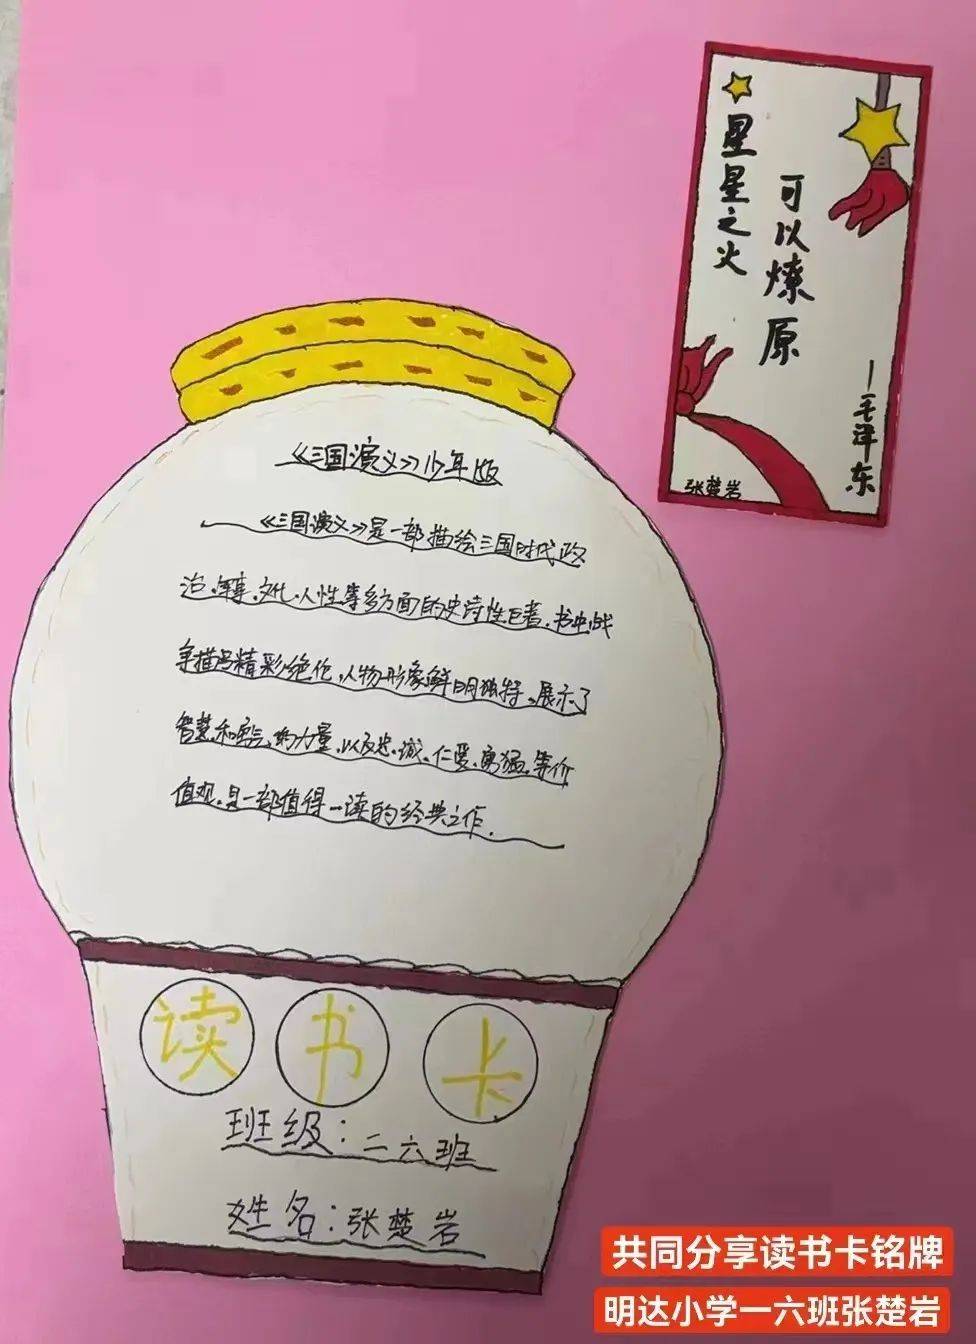 星星之火
可以燎原
一毛泽东
张楚岩
《三国演义》少年版
《三国演义》是一部描绘三国时代政
治、军事、文化、人性等多方面的史诗性巨著。书中战
争描写精彩绝伦,人物形象鲜明独特。展示了
智慧和勇气的力量,以及忠诚、仁爱、勇猛等价
值观。是一部值得一读的经典之作.
读书卡
班级:二六班
姓名:张楚岩
共同分享读书卡铭牌
明达小学一六班张楚岩